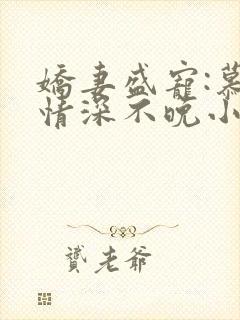 嬌妻盛寵:慕
情深不晚.小
贙老爺